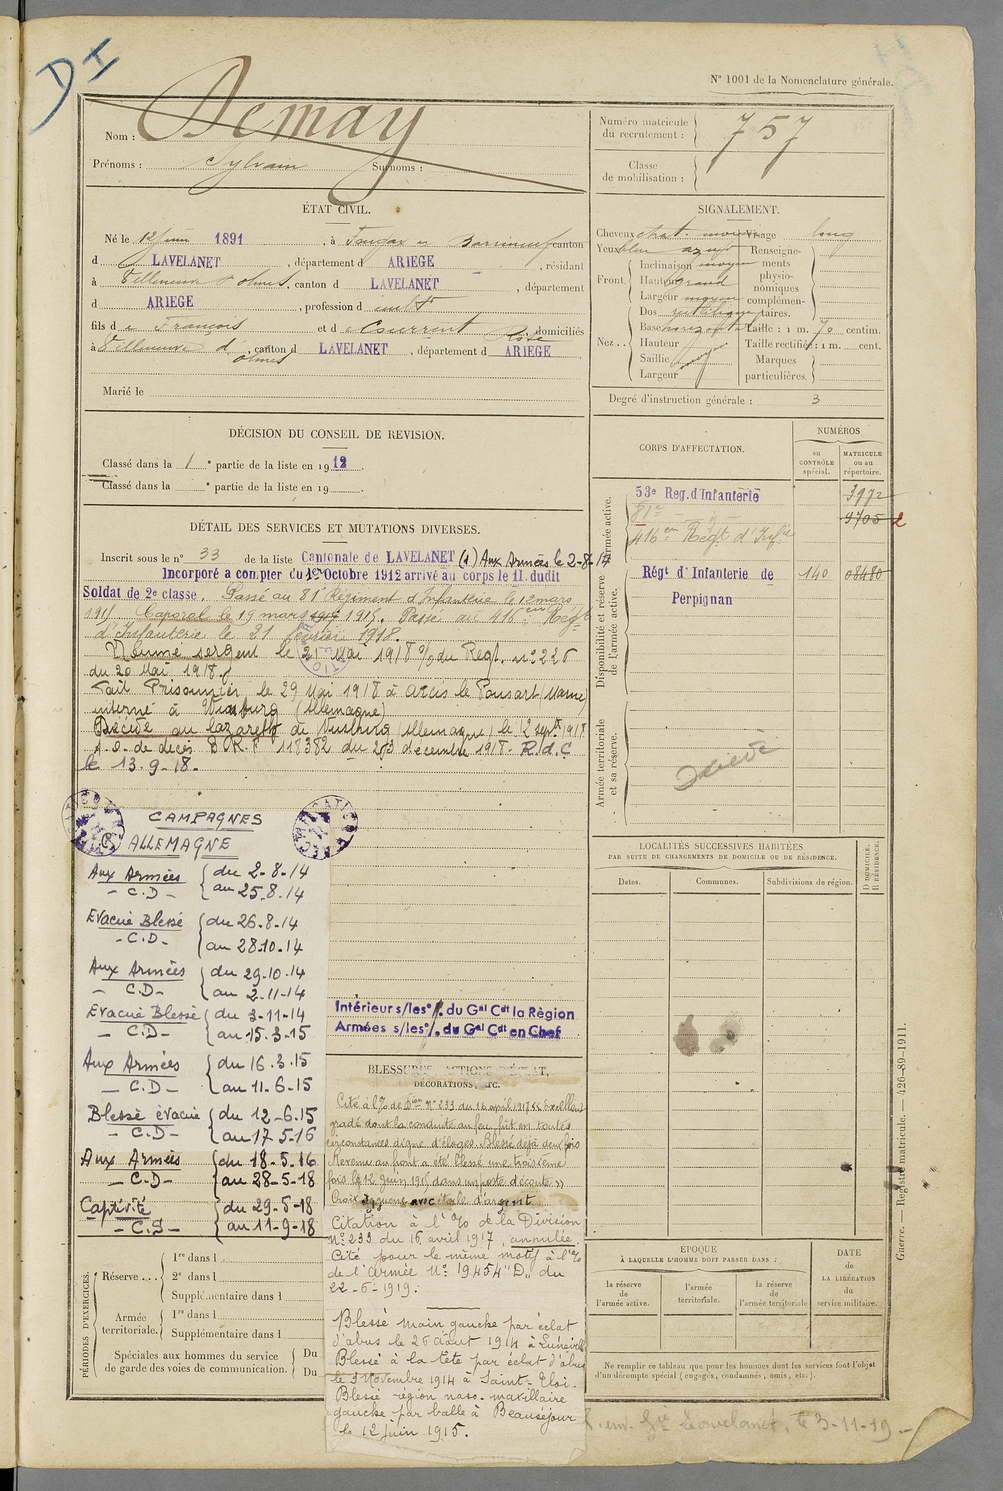 DI
N° 1001 de la Nomenclature générale.
Nom : Demay
Prénoms : Sylvain Surnoms :
Numéro matricule du recrutement : 757
Classe de mobilisation :
ÉTAT CIVIL.
Né le 12 juin 1891, à Fougax et Barrineuf canton
d LAVELANET, département d ARIEGE, résidant
à Villeneuve d'olmes, canton d LAVELANET, département
d ARIEGE, profession d cultr
fils d e François et d e Courrent Rose, domiciliés
à Villeneuve d'olmes, canton d LAVELANET, département d ARIEGE.
Marié le
SIGNALEMENT.
Cheveux chat. moyen Visage long
Yeux bleu azuré Renseigne-
Front. Inclinaison moyen ments
Hauteur grand physio-
Largeur moyen nomiques
complémen-
Nez .. Dos taires.
Base horizontal Taille : 1 m. 70 centim.
Hauteur Taille rectifiée : 1 m. cent.
Saillie moyen Marques
Largeur particulières.
Degré d'instruction générale : 3
DÉCISION DU CONSEIL DE REVISION.
Classé dans la 1e partie de la liste en 1912.
Classé dans la e partie de la liste en 19
CORPS D'AFFECTATION.
NUMÉROS
au CONTRÔLE spécial.
MATRICULE ou au répertoire.
Armée active.
53e Reg. d'Infanterie 3972
81e - - 9705
416eme Régt d'Infie
Disponibilité et réserve de l'armée active.
Régt d'Infanterie de 140 08480
Perpignan
Armée territoriale et sa réserve.
DÉTAIL DES SERVICES ET MUTATIONS DIVERSES.
Inscrit sous le n° 33 de la liste Cantonale de LAVELANET (1) Aux Armées le 2-8-14
Incorporé a compter du 1er Octobre 1912 arrivé au corps le 11 dudit
Soldat de 2e classe. Passé au 81e Régiment d'Infanterie le 12 mars
1915. Caporal le 19 mars 1915. Passé au 416em Régt
d'Infanterie le 21 février 1918.
Nommé sergent le 21 Mai 1918 o/o du Regt. n° 226
du 20 Mai 1918.
Fait Prisonnier le 29 Mai 1918 à Arcis le Ponsart (Marne)
interné à (Allemagne)
Décédé au lazarett de (Allemagne) le 12 septre 1918
de décès D.R.F 118382 du décembre 1918. R.d.C
le 13-9-18.
CAMPAGNES
C/ ALLEMAGNE
Aux Armées du 2-8-14
- C.D - au 25.8.14
Evacué Blessé du 26-8-14
- C.D - au 28-10-14
Aux Armées du 29-10-14
- C.D - au 2-11-14
Evacué Blessé du 3-11-14
- C.D - au 15.3-15
Aux Armées du 16.3.15
- C.D - au 11-6-15
Blessé évacué du 12-6.15
- C.D - au 17-5-16
Aux Armées du 18-5-16
- C.D - au 28-5-18
Captivité du 29-5-18
- C.S - au 11-9-18
Intérieur s/les o/. du Gal Cdt la Règion
Armées s/les o/. du Gal Cdt en Chef
BLESSURES, ACTIONS D'ÉCLAT,
DÉCORATIONS, ETC.
Cité à l'% de Dion N° 233 du 16 avril 1917 « Excellent
gradé dont la conduite au feu fut en toutes
circonstances digne d'éloges. Blessé déjà deux fois
Revenu au front a été blessé une troisième
fois le 12 juin 1915 dans un poste d'écoute »
Croix de guerre avec étoile d'argent
Citation à l'% de la Division
N° 233 du 16 avril 1917, annulée.
Cité pour le même motif à l'%
de l'Armée N° 19454 "D" du
22-6-1919.
Blessé main gauche par éclat
d'obus le 26 août 1914 à Lunéville
Blessé à la tête par éclat d'obus
le 3 Novembre 1914 à Saint-Eloi.
Blessé région naso-maxillaire
gauche par balle à Beauséjour
le 12 juin 1915.
LOCALITÉS SUCCESSIVES HABITÉES
PAR SUITE DE CHANGEMENTS DE DOMICILE OU DE RÉSIDENCE.
Dates. Communes. Subdivisions de région. D DOMICILE. R RÉSIDENCE.
ÉPOQUE
À LAQUELLE L'HOMME DOIT PASSER DANS :
la réserve de l'armée active. l'armée territoriale. la réserve de l'armée territoriale
DATE de LA LIBÉRATION du service militaire.
Ne remplir ce tableau que pour les hommes dont les services font l'objet
d'un décompte spécial (engagés, condamnés, omis, etc.).
PÉRIODES D'EXERCICES.
Réserve ... 1re dans l
2e dans l
Supplémentaire dans l
Armée territoriale. 1re dans l
Supplémentaire dans l
Spéciales aux hommes du service Du
de garde des voies de communication. Du
Lavelanet, le 3-11-19
Guerre. — Registre matricule. — 426-89-1911.